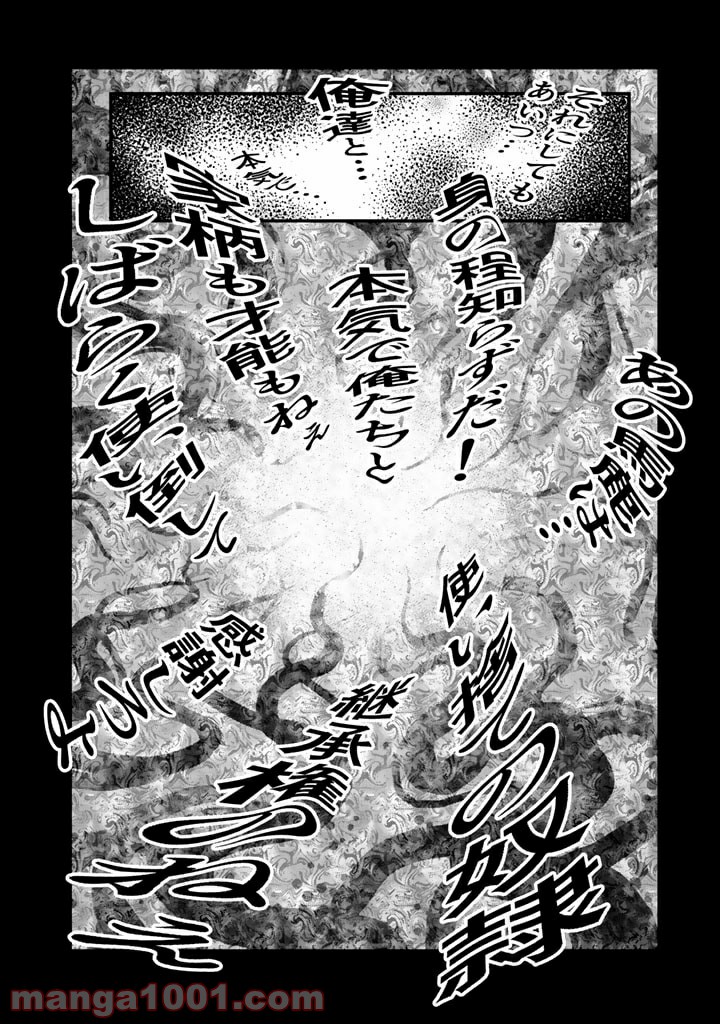 それにしても
あいつ…
俺達と…
本気で…
身の程知らずだ！
本気で俺たちと
家柄も才能もねぇ
しばらく使い倒して
あの馬龍は…
使い捨ての奴隷
継承権のねえ
感謝しろよ
manga1001.com